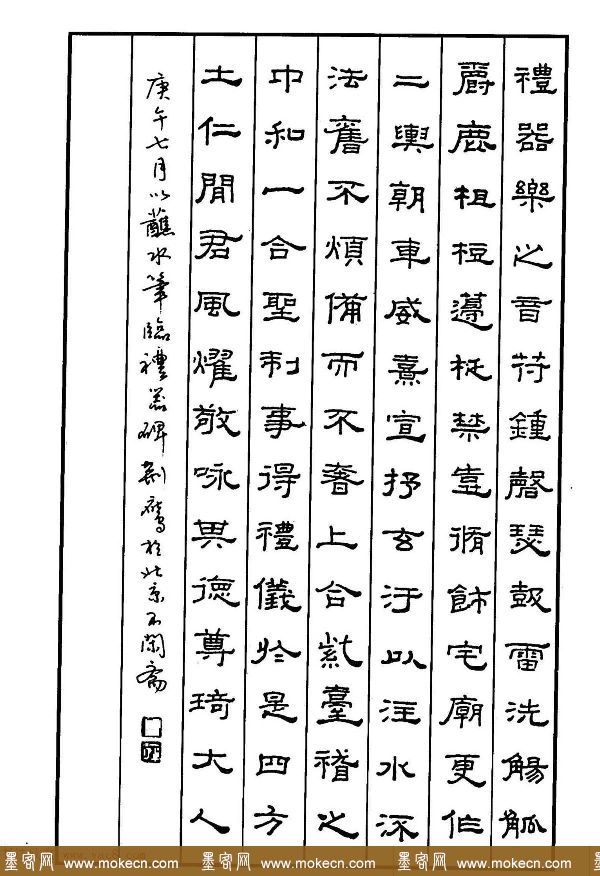 禮器樂之音符鍾磬瑟鼓雷洗觴觚
爵鹿柤梪籩柉禁壼脩飾宅廟更作
二輿朝車威熹宣抒玄汙以注水流
法舊不煩備而不奢上合紫臺稽之
中和一合聖制事得禮儀於是四方
土仁聞君風燿敬咏其德尊琦大人
庚午七月以蘸水筆臨禮器碑 荆鷹於北京不閑齋
墨客网 www.mokecn.com 墨客网 www.mokecn.com 墨客网 www.mokecn.com